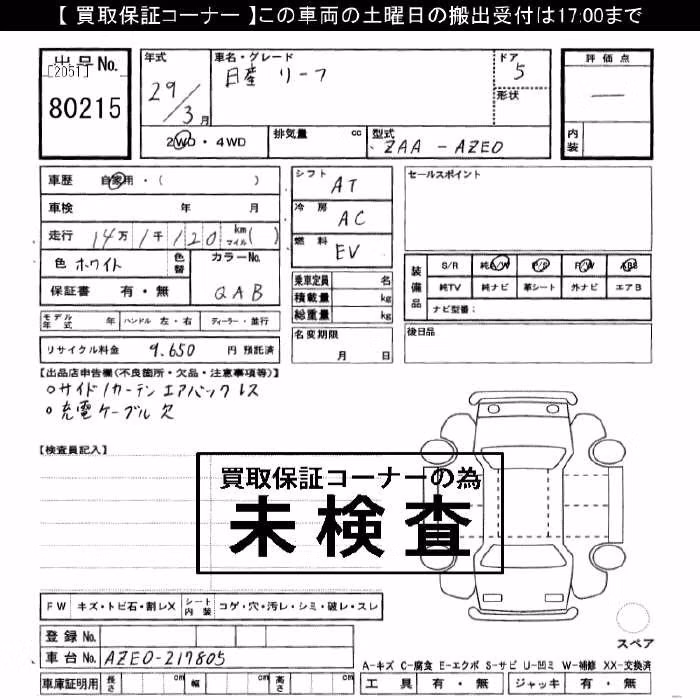 【 買取保証コーナー 】この車両の土曜日の搬出受付は17:00まで
出品No.
[2051]
80215
年式
29/3月
車名・グレード
日産 リーフ
ドア
5
形状
評価点
—
内装
2WD・4WD
排気量 cc
型式
ZAA - AZE0
車歴 自家用・( )
車検 年 月
走行 14万 1千 120 km マイル( )
色 ホワイト
色替
カラーNo.
QAB
保証書 有・無
シフト
AT
冷房
AC
燃料
EV
乗車定員 名
積載量 kg
総重量 kg
セールスポイント
装備品
S/R 純A/W P/S P/W ABS
純TV 純ナビ 革シート 外ナビ エアB
ナビ型番:
モデル年式 年 ハンドル 左・右 ディーラー・並行
リサイクル料金 9.650 円 預託済
名変期限
月 日
後日品
【出品店申告欄(不良箇所・欠品・注意事項等)】
○サイド/カーテンエアバックレス
○充電ケーブル欠
【検査員記入】
買取保証コーナーの為
未検査
FW キズ・トビ石・割レX シート内装 コゲ・穴・汚レ・シミ・破レ・スレ
登録No.
車台No. AZE0-217805
車庫証明用 長さ cm 幅 cm 高さ cm
スペア
A-キズ C-腐食 E-エクボ S-サビ U-凹ミ W-補修 XX-交換済
工具 有・無 ジャッキ 有・無